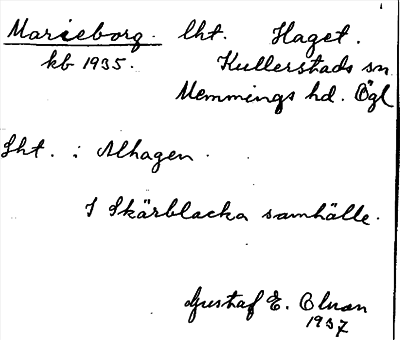 Marieborg. lht. Haget.
kb 1935. Kullerstads sn
Memmings hd. Ögl
Lht. i Alhagen.
I Skärblacka samhälle.
Gustaf E. Olson
1937